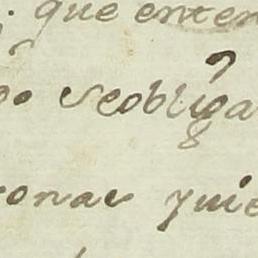 que enten
se obliga
onas quie